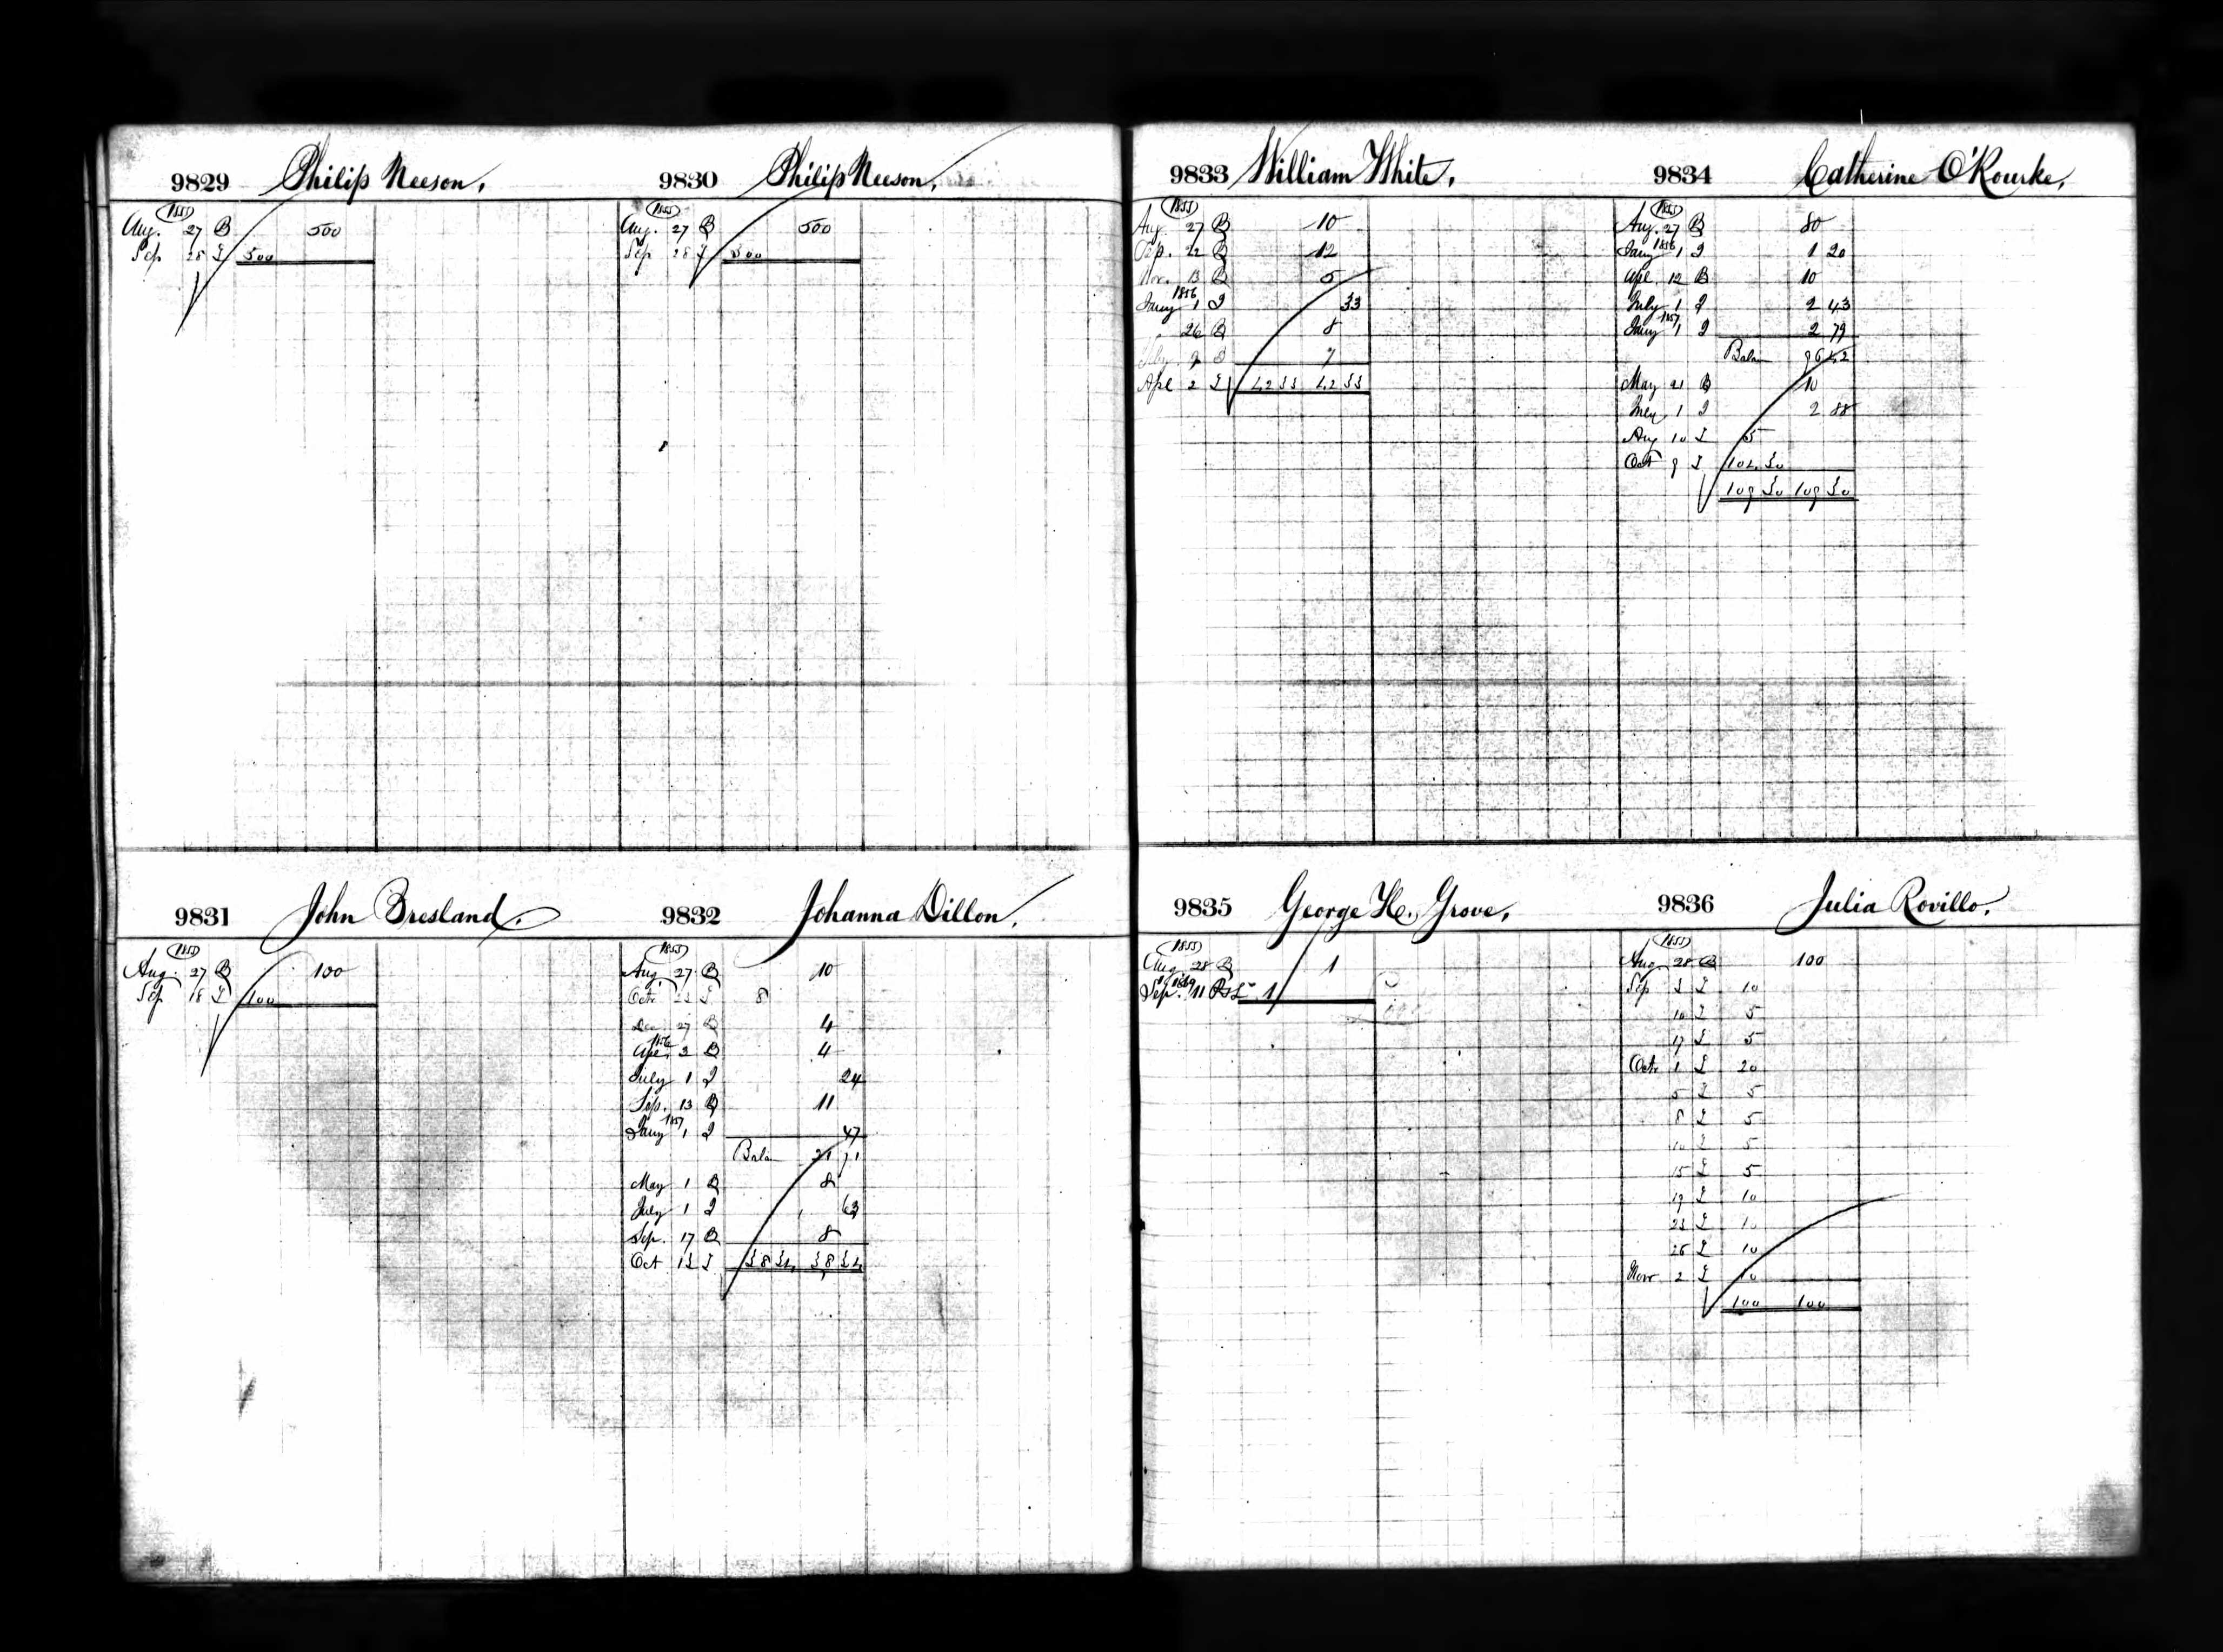 9829 Philip Neeson.
1855
Aug. 27 B 500
Sep 28 £ 500
9830 Philip Neeson.
1855
Aug. 27 B 500
Sep 28 £ 500
9831 John Bresland.
1855
Aug. 27 B 100
Sep 18 £ 100
9832 Johanna Dillon.
1855
Aug 27 B 10
Octr 23 £ 8
Dec 27 B 4
1856
Apl. 3 B 4
July 1 I 24
Sep. 13 B 11
1857
Jany 1 I 47
Balan 21 71
May 1 B 8
July 1 I 63
Sep. 17 B 8
Oct 13 £ 38 34 38 34
9833 William White.
1855
Aug 27 B 10
Sep. 22 B 12
Nov. 13 B 5
1856
Jany 1 I 33
26 B 8
7
Apl 2 £ 42 33 42 33
9834 Catherine O'Rourke.
1855
Aug. 27 B 80
1856
Jany 1 I 1 20
Apl. 12 B 10
July 1 I 2 43
1857
Jany 1 I 2 79
Balan 96 42
May 21 B 10
July 1 I 2 88
Aug 10 £ 5
Oct 9 £ 104 30
109 30 109 30
9835 George H. Grove.
1855
Aug 28 B 1
1869
Sep. 11 1
9836 Julia Rovillo.
1855
Aug 28 B 100
Sep 3 £ 10
10 £ 5
17 £ 5
Octr 1 £ 20
5 £ 5
8 £ 5
10 £ 5
15 £ 5
19 £ 10
23 £ 10
26 £ 10
Novr 2 £ 10
100 100